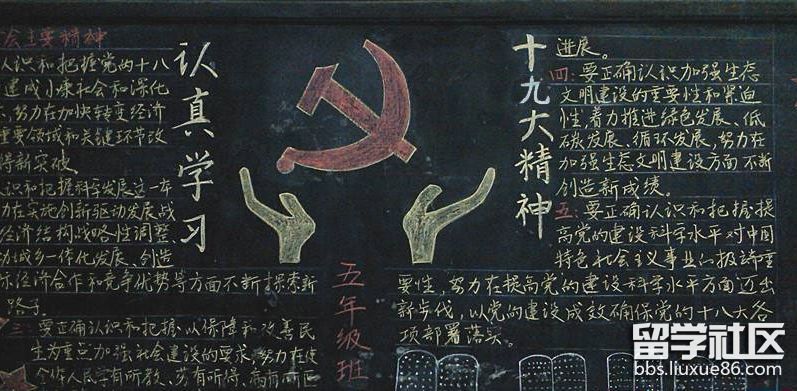 会主要精神
认识和把握党的十八
建成小康社会和深化
努力在加快转变经济
重要领域和关键环节改
得新突破
识和把握科学发展这一
力在实施创新驱动发展战
经济结构战略性调整、
城乡一体化发展、创造
际经济合作和竞争优势等方面不断探索新
路子。
三:要正确认识和把握以保障和改善民
生为重点加强社会建设的要求,努力在使
人民学有所教、劳有所得、病有所医
认真学习
十九大精神
进展。
四:要正确认识加强生态
文明建设的重要性和紧迫
性,着力推进绿色发展、低
碳发展、循环发展,努力在
加强生态文明建设方面不断
创造新成绩。
五:要正确认识和把握提
高党的建设科学水平对中国
特色社会主义事业的极端重
要性,努力在提高党的建设科学水平方面迈出
新步伐,以党的建设成效确保党的十八大各
项部署落实。
五年级班
留学社区
bbs.liuxue86.com